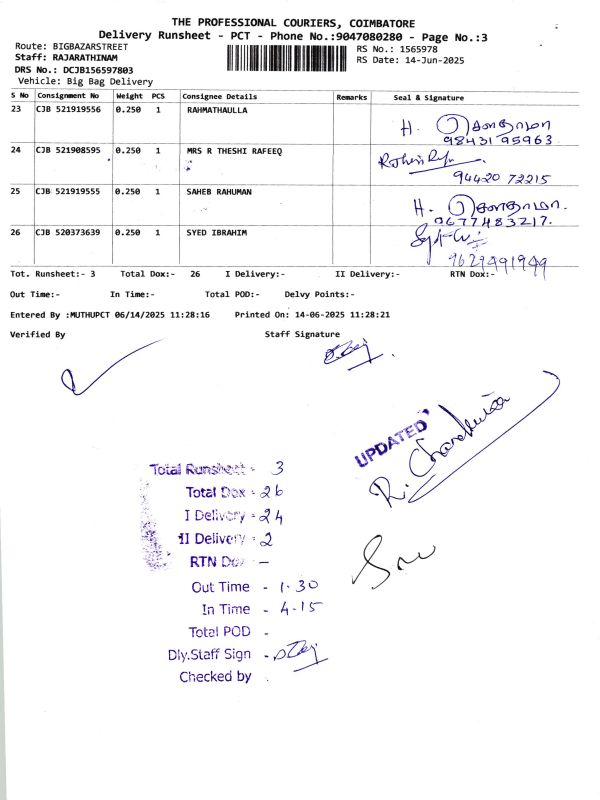 THE PROFESSIONAL COURIERS, COIMBATORE
Delivery Runsheet - PCT - Phone No.:9047080280 - Page No.:3
Route: BIGBAZARSTREET
RS No.: 1565978
Staff: RAJARATHINAM
RS Date: 14-Jun-2025
DRS No.: DCJB156597803
Vehicle: Big Bag Delivery
S No Consignment No Weight PCS Consignee Details Remarks Seal & Signature
23 CJB 521919556 0.250 1 RAHMATHAULLA
H.
98431 95963
24 CJB 521908595 0.250 1 MRS R THESHI RAFEEQ
94420 72215
25 CJB 521919555 0.250 1 SAHEB RAHUMAN
H.
96774 83217.
26 CJB 520373639 0.250 1 SYED IBRAHIM
9629491949
Tot. Runsheet:- 3 Total Dox:- 26 I Delivery:- II Delivery:- RTN Dox:-
Out Time:- In Time:- Total POD:- Delvy Points:-
Entered By :MUTHUPCT 06/14/2025 11:28:16 Printed On: 14-06-2025 11:28:21
Verified By Staff Signature
UPDATED
Total Runsheet - 3
Total Dox - 26
I Delivery - 24
II Delivery - 2
RTN Dox -
Out Time - 1.30
In Time - 4.15
Total POD -
Dly.Staff Sign -
Checked by